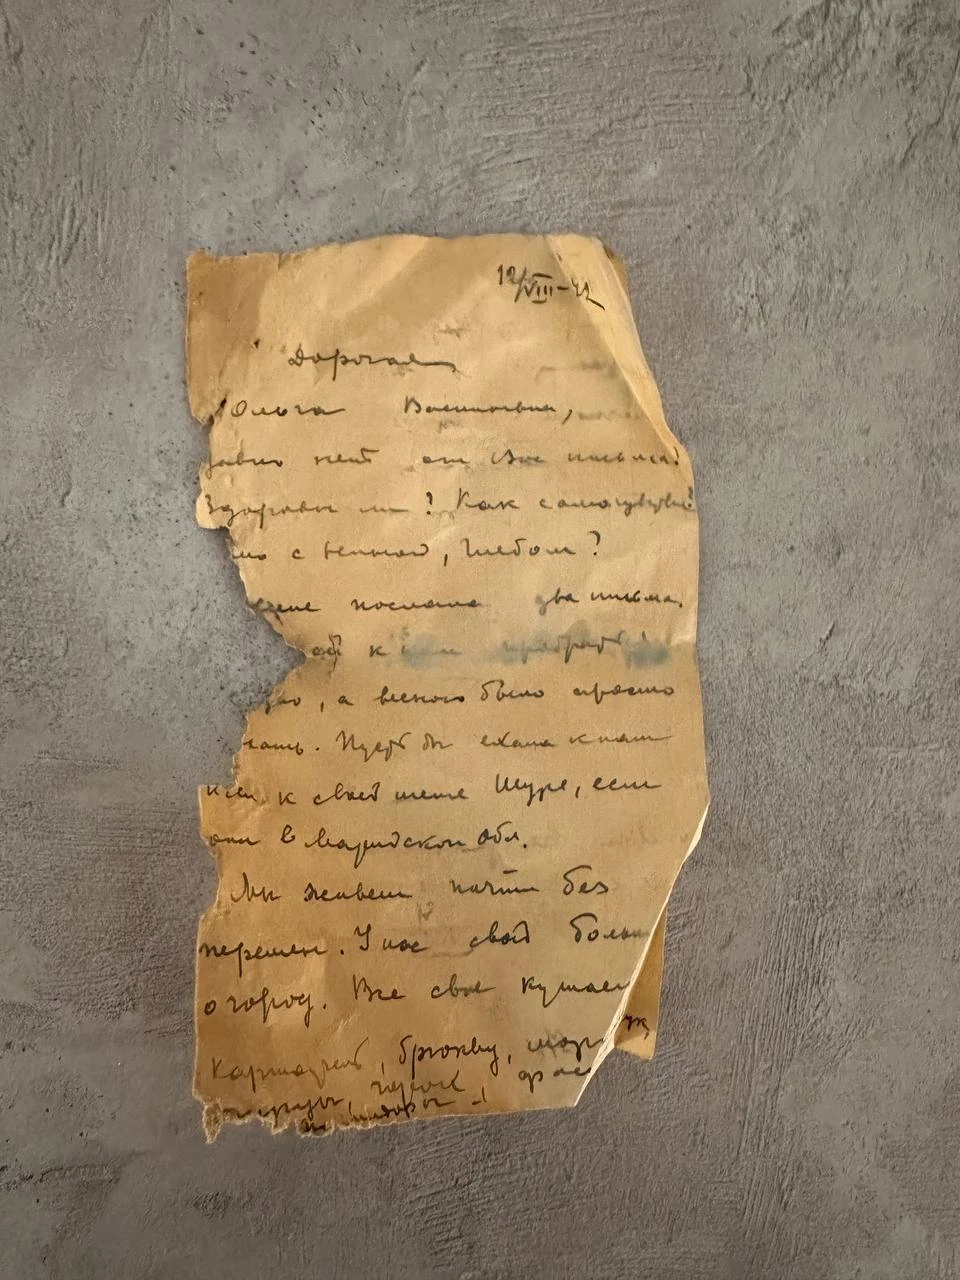 12/VIII-42
Дорогая
Ольга Васильевна,
давно нет от Вас письма!
Здоровы ли? Как самочувствие
с Глебом?
послала два письма.
к
, а весной было просто
. Пусть бы ехала к нам
к своей тете Шуре, если
они в Марийской обл.
Мы живем почти без
перемен. У нас свой больш
огород. Все свое кушаем
Картофель, брюкву, морк
огурцы, горох,
помидоры